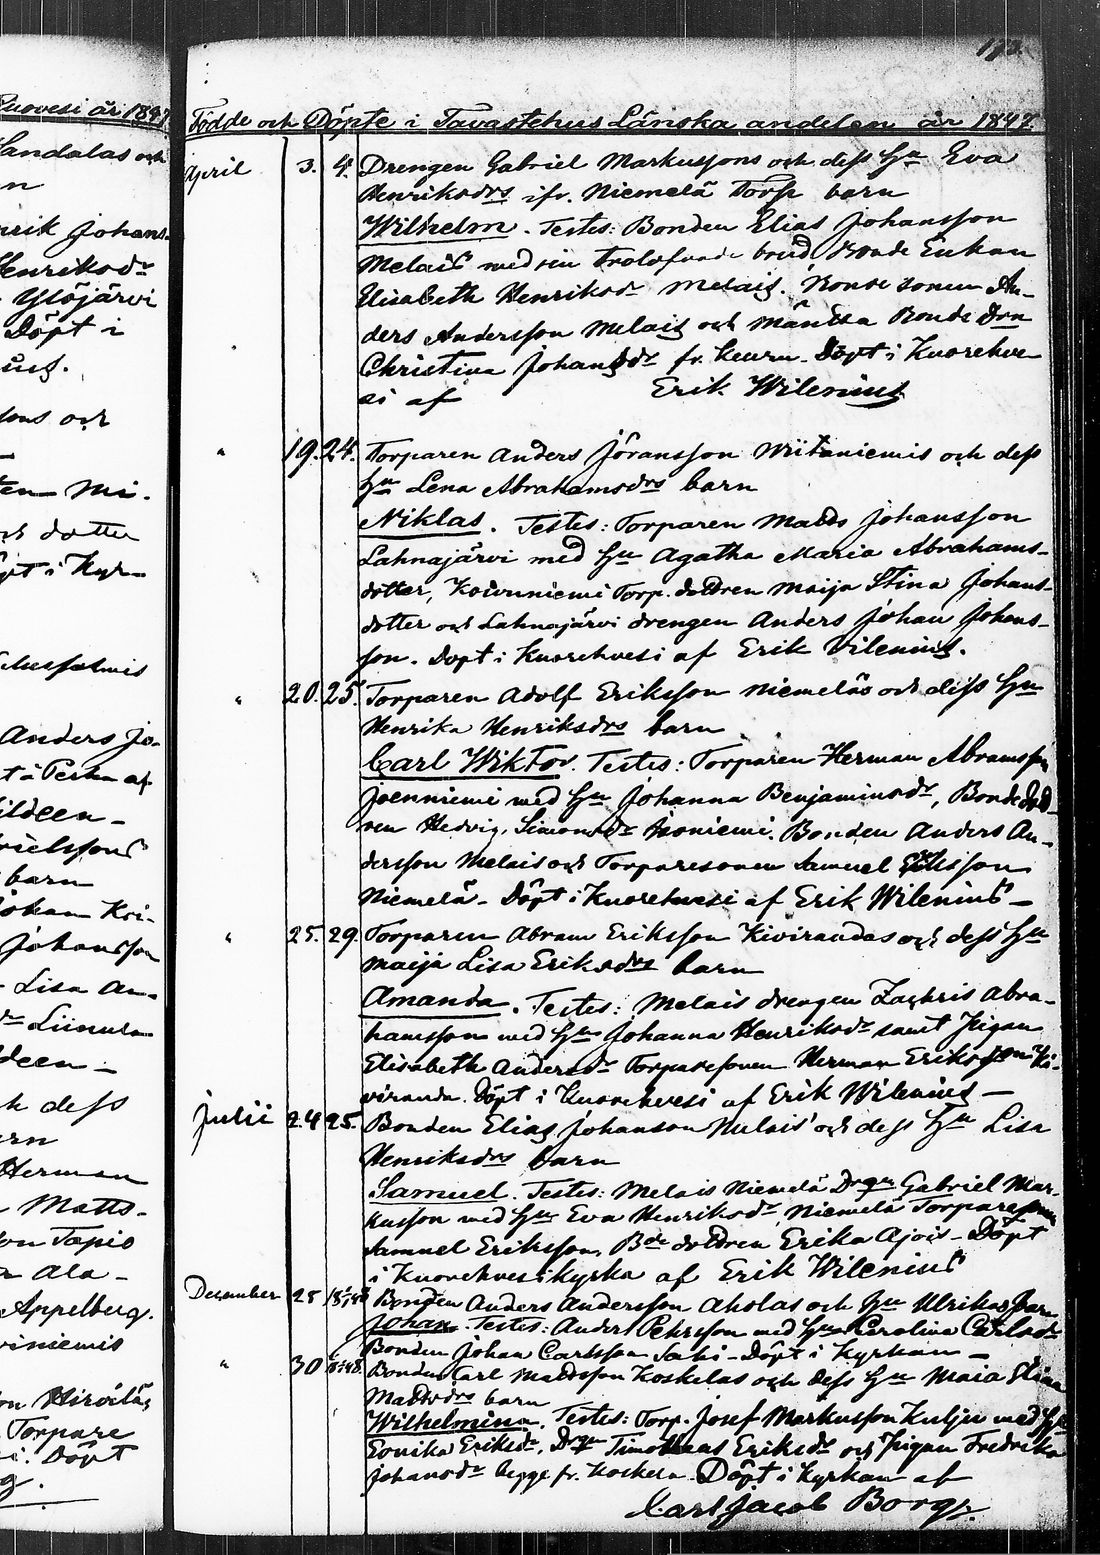 Ruovesi år 1847.
Sandalas och
n
nrik Johans-
Henriksdr
Ylöjärvi
Döpt i
sons och
ten Mi-
och dotter
öpt i Kyr-
Anders Jo-
ildeen
barn
Johan Kri-
Johansson
Lisa An-
dr Liinura
ldeen
k dess
rn
Herman
Matts-
on Tapio
Ala-
Appelberg.
viniemis
on Hirvilä,
Torpare
i. Döpt
g.
193.
Födde och Döpte i Tavastehus Länska andelen år 1847.
April 3. 4. Drengen Gabriel Markussons och dess Hu Eva
Henriksdrs ifr. Niemelä Torp barn
Wilhelm. Testes: Bonden Elias Johansson
Melais med sin trolofvade brud Bonde Enkan
Elisabeth Henriksdr Melais. Bonde sonen An-
ders Andersson Melais och Mäntsa Bonde Don
Christina Johansdr fr. Keuru. Döpt i Kuorehve-
si af Erik Wilenius
" 19. 24. Torparen Anders Jöransson Wiitaniemis och dess
Hu Lena Abrahamsdrs barn
Niklas. Testes: Torparen Matts Johansson
Lahnajärvi med Hu Agatha Maria Abrahams-
dotter, Koivuniemi Torp. dottren Maija Stina Johans-
dotter och Lahnajärvi drengen Anders Johan Johans-
son. Döpt i Kuorehvesi af Erik Vilenius.
" 20. 25. Torparen Adolf Eriksson Niemeläs och dess Hu
Henrika Henriksdrs barn
Carl Wiktor. Testes: Torparen Herman Abramsson
Joenniemi med Hu Johanna Benjaminsdr, Bonde dott-
ren Hedvig Simonsdr Isoniemi. Bonden Anders An-
dersson Melais och Torparesonen Samuel Eriksson
Niemelä. Döpt i Kuorehvesi af Erik Wilenius
" 25. 29. Torparen Abram Eriksson Kivirandas och dess Hu
Maija Lisa Eriksdrs barn
Amanda. Testes: Melais drengen Zachris Abra-
hamsson med Hu Johanna Henriksdr samt Pigan
Elisabeth Andersdr Torparesonen Herman Eriksson Ki-
viranda. Döpt i Kuorehvesi af Erik Wilenius
Julii 24 25. Bonden Elias Johanson Melais och dess Hu Lisa
Henriksdrs barn
Samuel. Testes: Melais Niemelä Drgn Gabriel Mar-
kusson med Hu Eva Henriksdr, Niemelä Torparesonen
Samuel Eriksson, Bde dottren Erika Ajois. Döpt
i Kuorehvesi kyrka af Erik Wilenius
December 25 Bonden Anders Andersson Aholas och Hu Ulrikas barn
Johan. Testes: Anders Pehrsson med Hu Carolina Carlsdr
Bonden Johan Carlsson Saki. Döpt i Kyrkan
" 30 Bonden Carl Mattsson Koskelas och dess Hu Maia Stina
Mattsdrs barn
Wilhelmina. Testes: Torp. Josef Markusson Kulju med Hu
Eovika Eriksdr, Drgn Timotheus Eriksdr och Pigan Fredrika
Johansdr begge fr. Koskela. Döpt i Kyrkan af
Carl Jacob Borg.